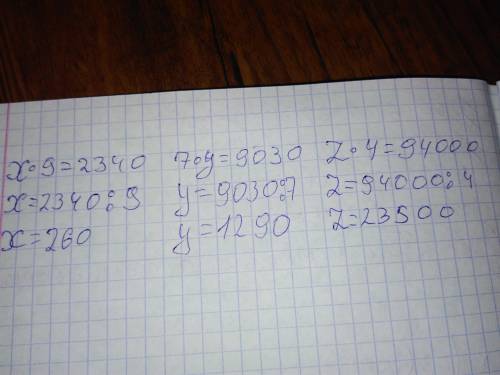 x·9=2340 7·y=9030 z·4=94000
x=2340:9 y=9030:7 z=94000:4
x=260 y=1290 z=23500